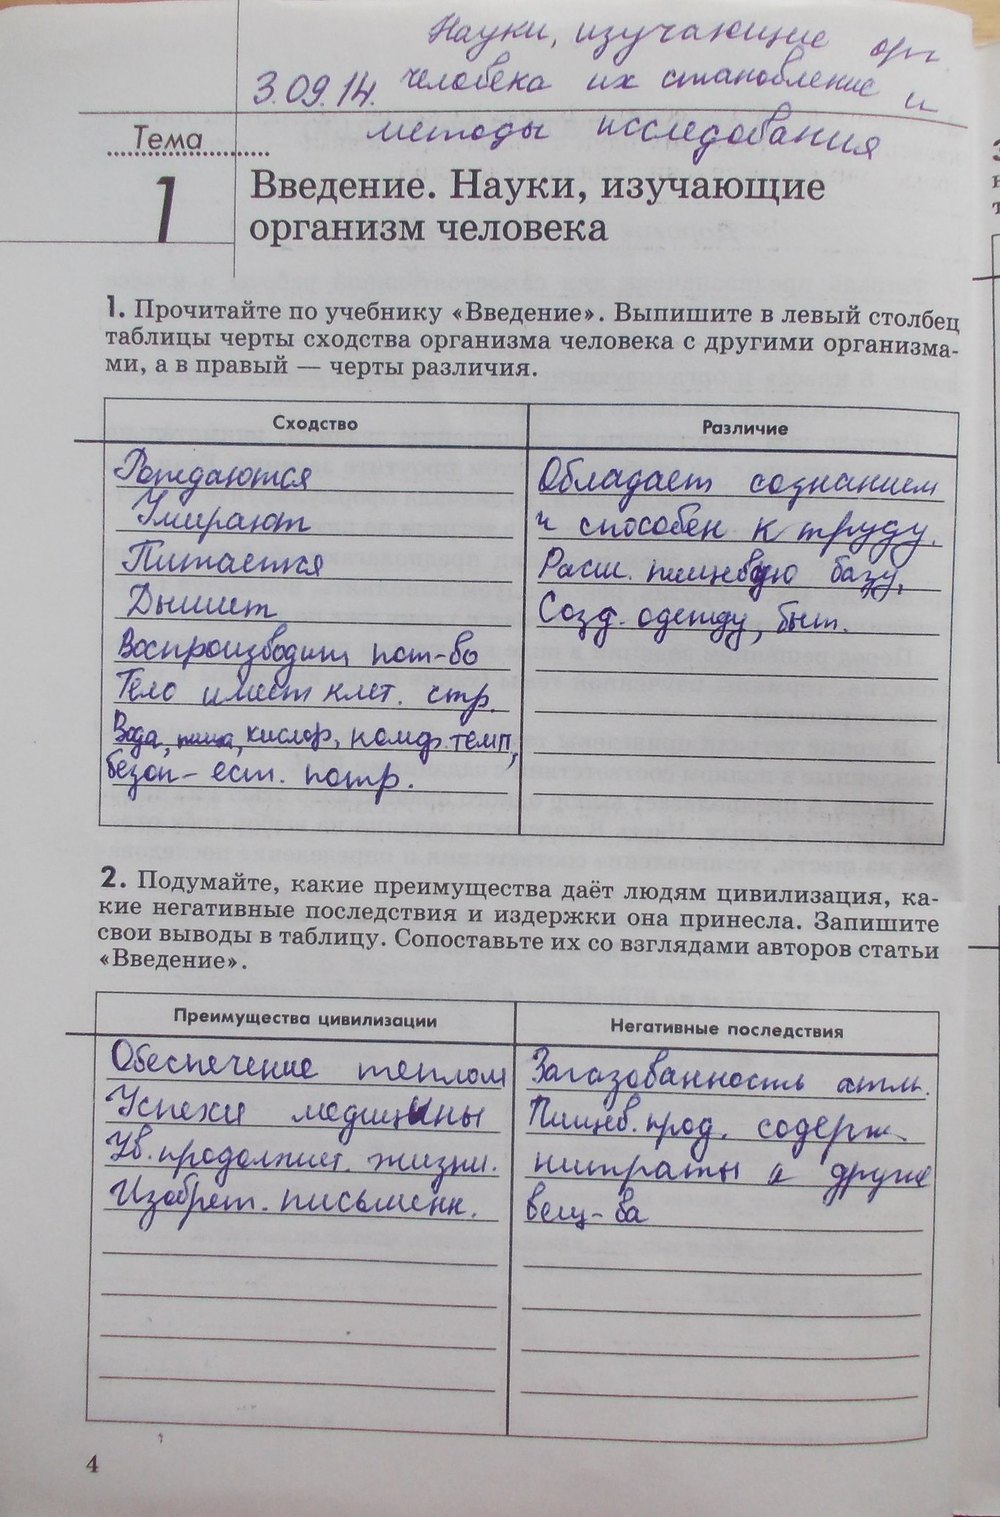 Науки, изучающие орг
3.09.14. человека их становление и
методы исследования
Тема
1
Введение. Науки, изучающие
организм человека
1. Прочитайте по учебнику «Введение». Выпишите в левый столбец
таблицы черты сходства организма человека с другими организма-
ми, а в правый — черты различия.
Сходство
Различие
Рождаются
Умирают
Питается
Дышит
Воспроизводит пот-во
Тело имеет клет. стр.
Вода, пища, кислор, комф. темп,
безоп- ест. потр.
Обладает сознанием
и способен к труду.
Расш. пищевую базу,
Созд. одежду, быт.
2. Подумайте, какие преимущества даёт людям цивилизация, ка-
кие негативные последствия и издержки она принесла. Запишите
свои выводы в таблицу. Сопоставьте их со взглядами авторов статьи
«Введение».
Преимущества цивилизации
Негативные последствия
Обеспечение теплом
Успехи медицины
Ув. продолжит. жизни.
Изобрет. письменн.
Загазованность атм.
Пищев. прод. содерж.
нитраты и другие
вещ-ва
4